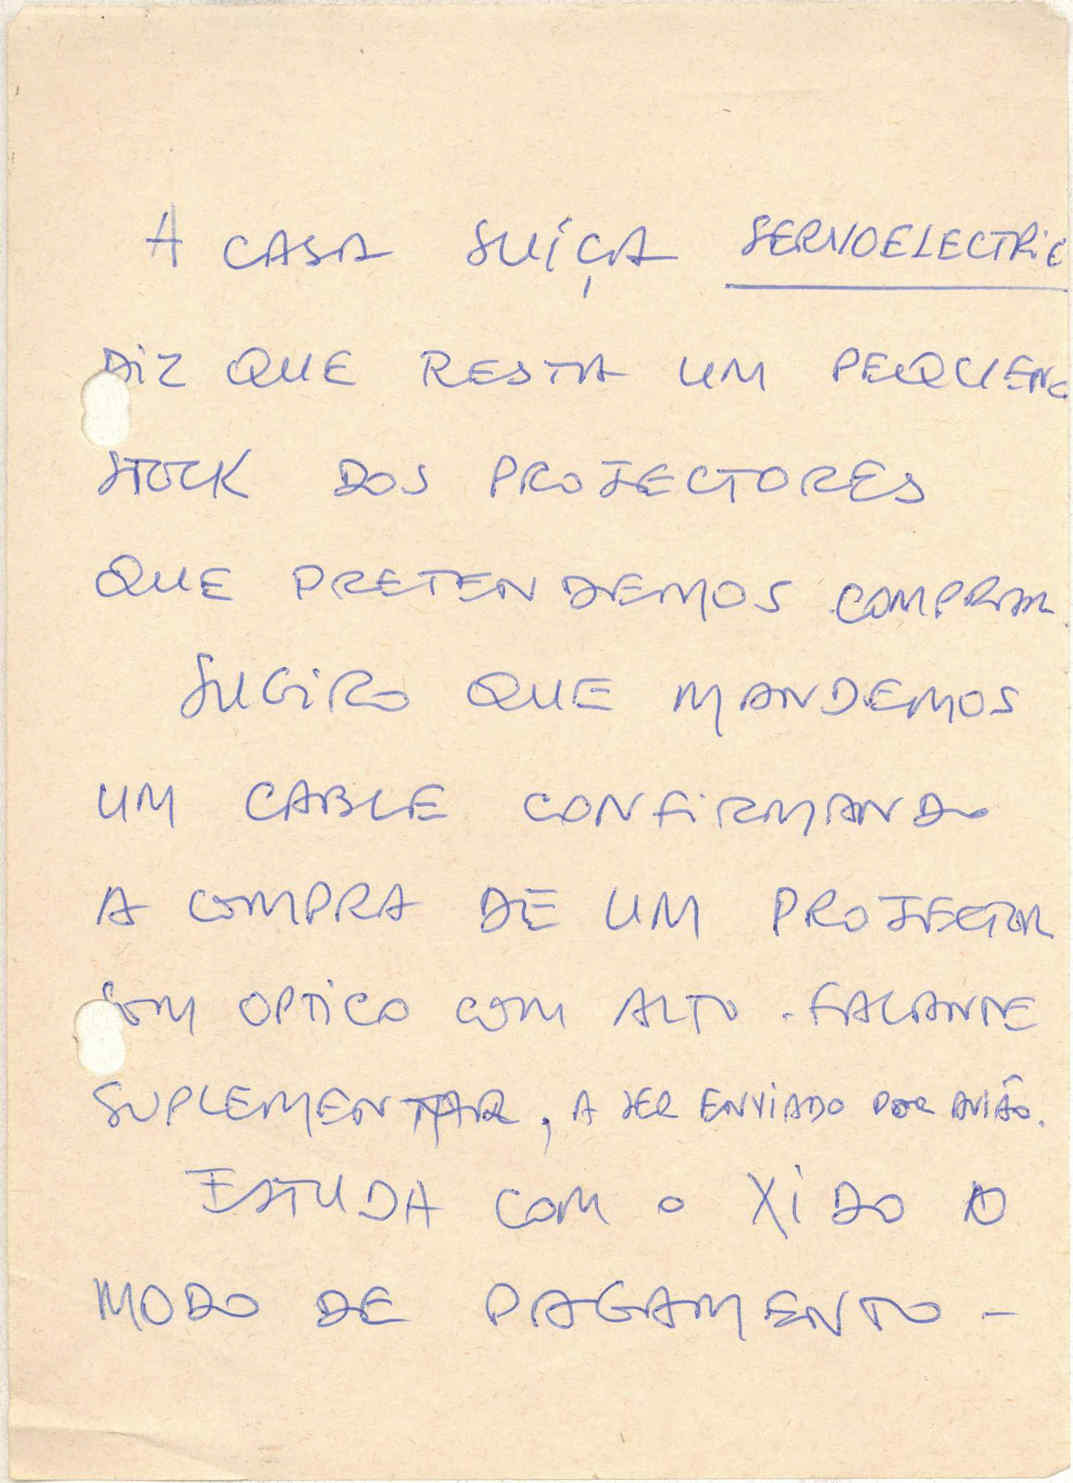 A CASA SUÍÇA SERVOELECTRIC
DIZ QUE RESTA UM PEQUENO
STOCK DOS PROJECTORES
QUE PRETENDEMOS COMPRAR.
SUGIRO QUE MANDEMOS
UM CABLE CONFIRMANDO
A COMPRA DE UM PROJECTOR
SOM OPTICO COM ALTO-FALANTE
SUPLEMENTAR, A SER ENVIADO POR AVIÃO.
ESTUDA COM O XIDO O
MODO DE PAGAMENTO -